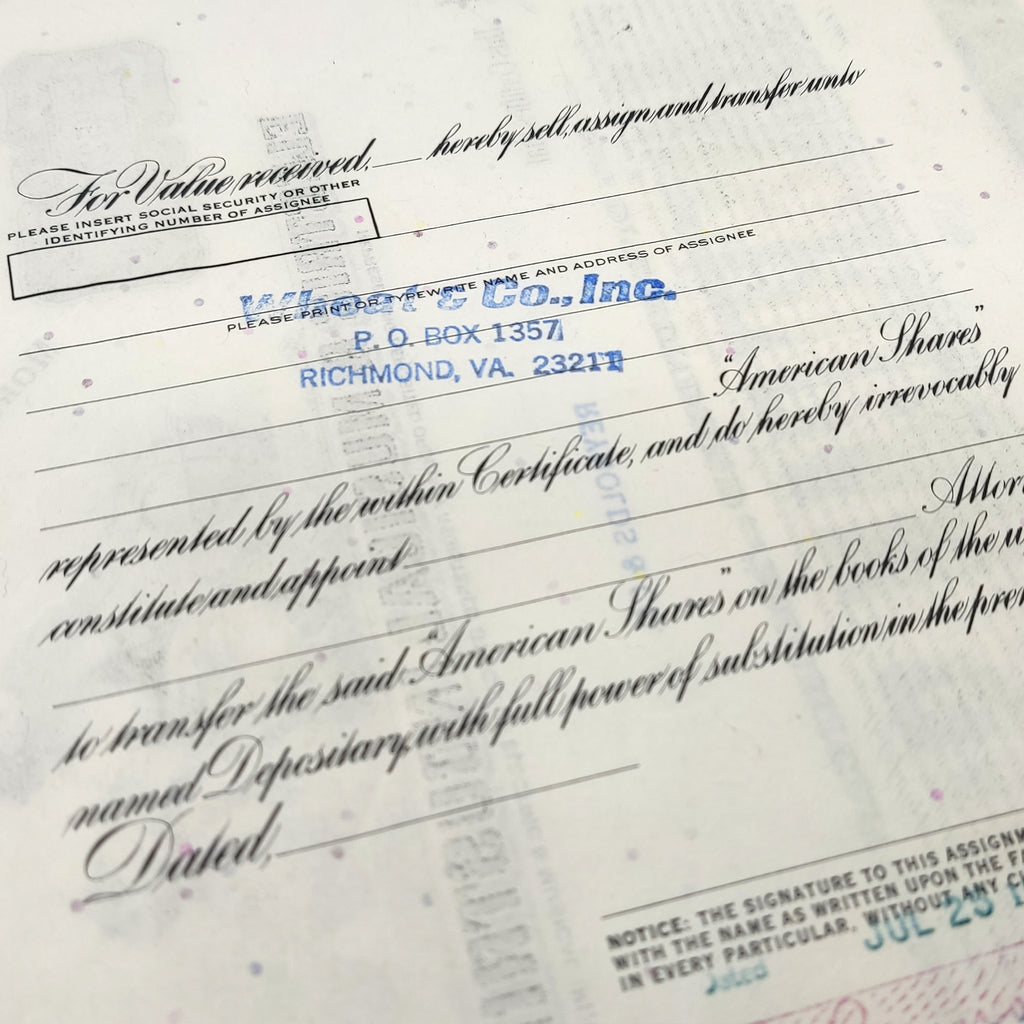 For Value received, hereby sell, assign and transfer unto
PLEASE INSERT SOCIAL SECURITY OR OTHER
IDENTIFYING NUMBER OF ASSIGNEE
PLEASE PRINT OR TYPEWRITE NAME AND ADDRESS OF ASSIGNEE
Wheat & Co., Inc.
P. O. BOX 1357
RICHMOND, VA. 23211
"American Shares"
represented by the within Certificate, and do hereby irrevocably
constitute and appoint
Attor
to transfer the said "American Shares" on the books of the
named Depositary, with full power of substitution in the
Dated,
NOTICE: THE SIGNATURE TO THIS ASSIGNM
WITH THE NAME AS WRITTEN UPON THE FA
IN EVERY PARTICULAR, WITHOUT ANY
JUL 23